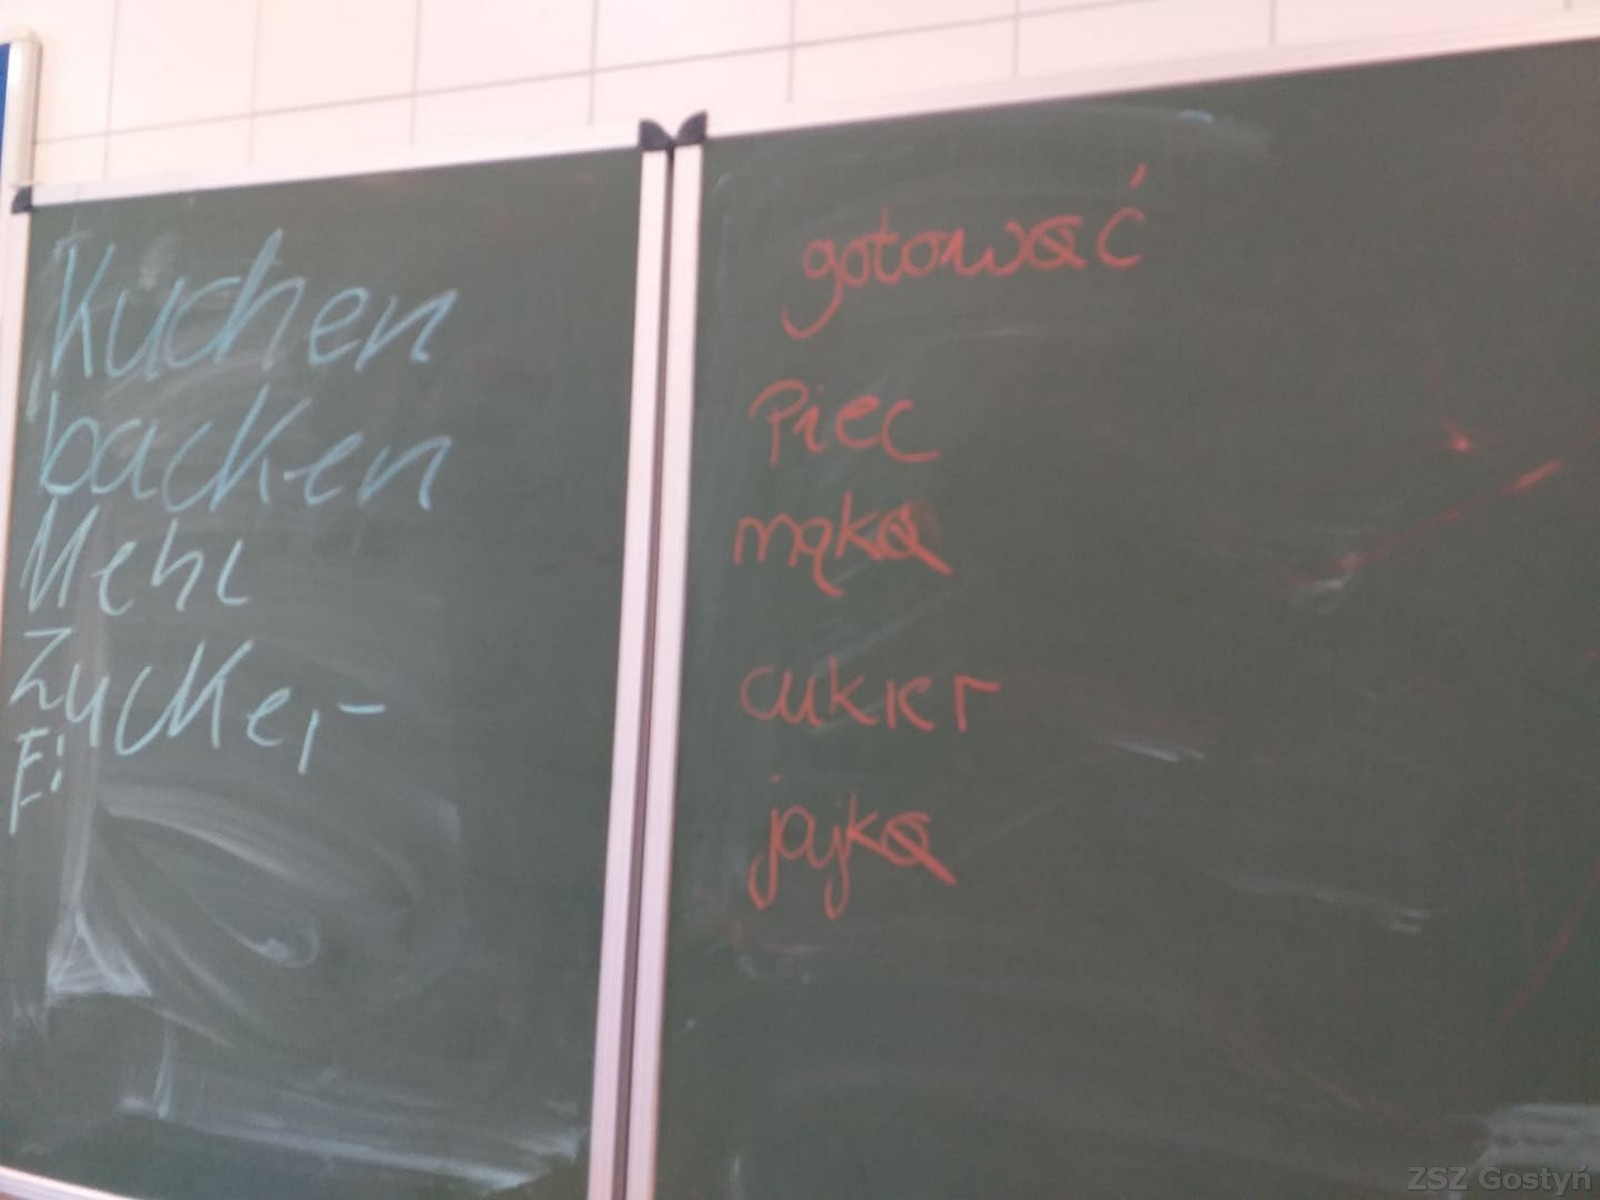 Kuchen
backen
Mehl
Zucker
Ei
gotować
Piec
mąka
cukier
jajka
ZSZ Gostyń